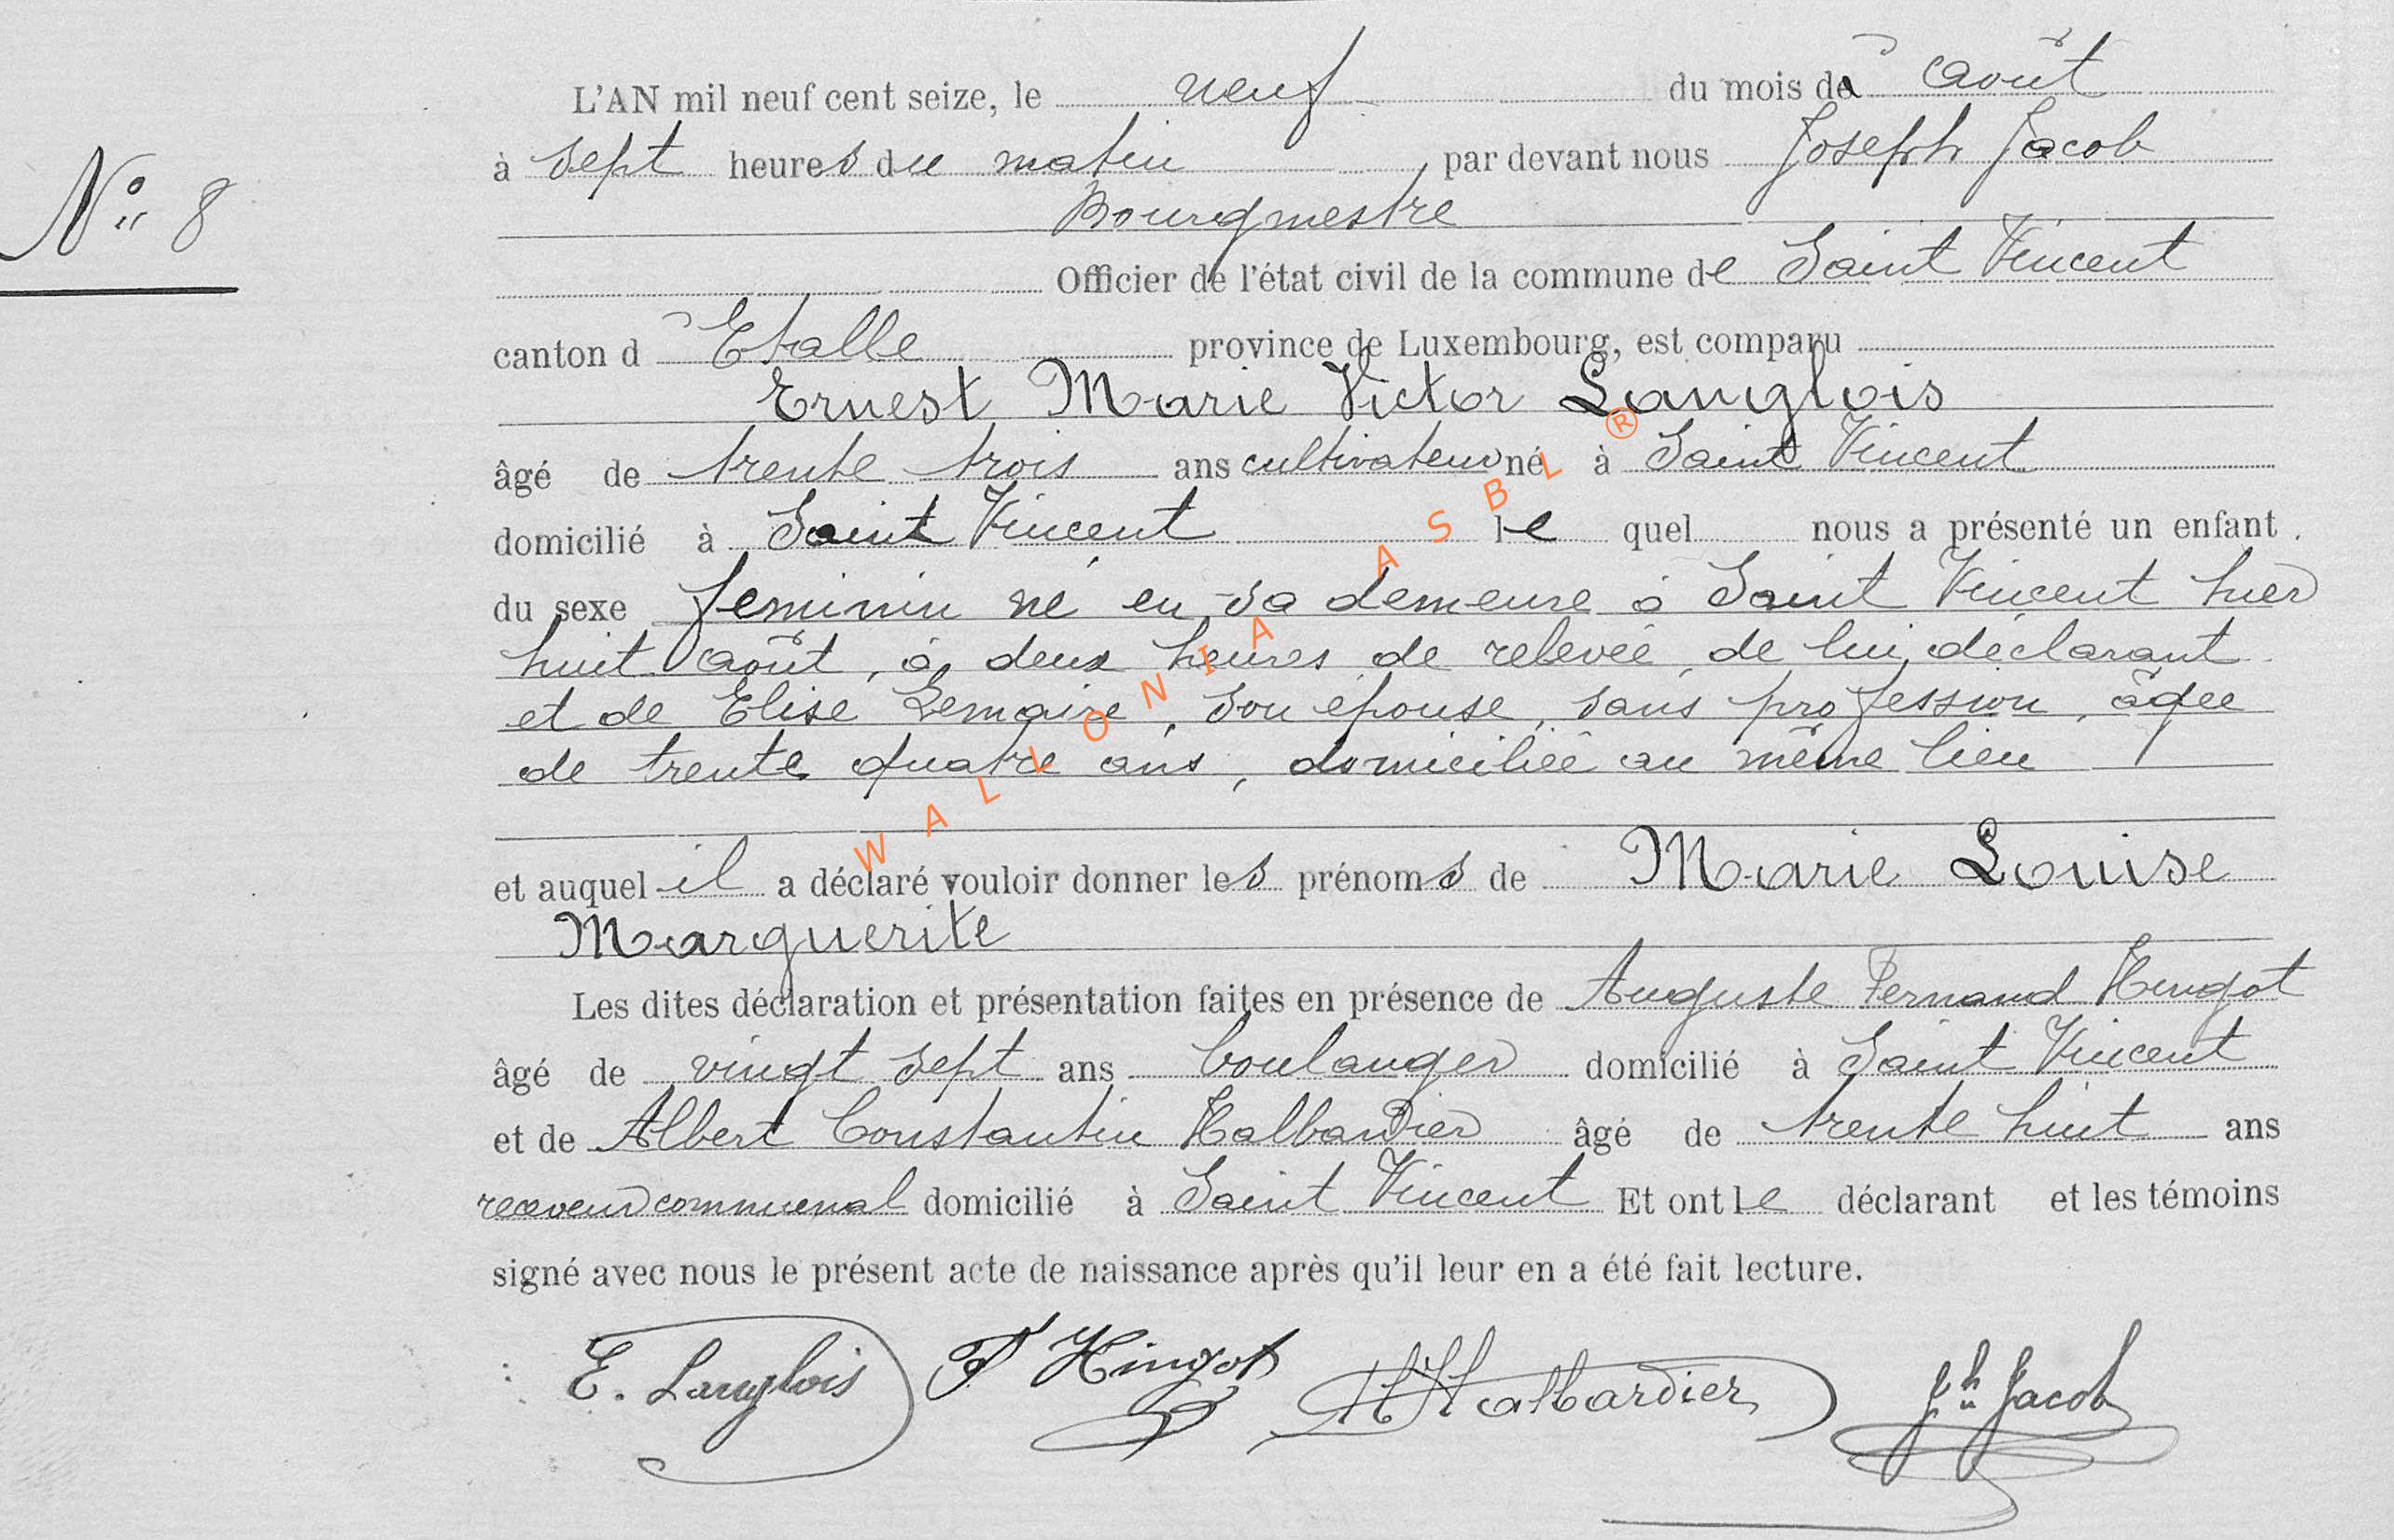 L'AN mil neuf cent seize, le neuf du mois dà août
à sept heures du matin, par devant nous Joseph Jacob
Bourgmestre
N° 8
Officier de l'état civil de la commune de Saint Vincent
canton d Etalle province de Luxembourg, est comparu
Ernest Marie Victor Langlois
âgé de trente trois ans cultivateur né à Saint Vincent
domicilié à Saint Vincent lequel nous a présenté un enfant
du sexe feminin né en sa demeure à Saint Vincent hier
huit août, à deux heures de relevée, de lui déclarant
et de Elise Lemaire, son épouse, sans profession, âgée
de trente quatre ans, domiciliée au même lieu
et auquel il a déclaré vouloir donner les prénoms de Marie Louise
Marguerite
Les dites déclaration et présentation faites en présence de Auguste Fernand Hingot
âgé de vingt sept ans boulanger domicilié à Saint Vincent
et de Albert Constantin Halbardier âgé de trente huit ans
receveur communal domicilié à Saint Vincent Et ont le déclarant et les témoins
signé avec nous le présent acte de naissance après qu'il leur en a été fait lecture.
E. Langlois F Hingot A Halbardier Jh Jacob
WALLONIA ASBL ®